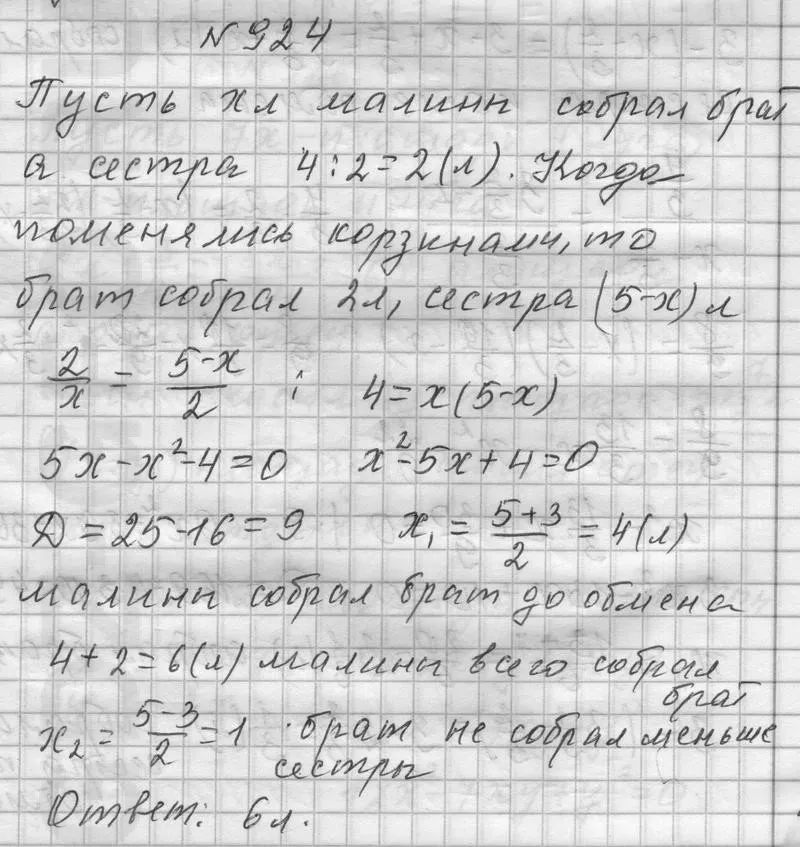 № 924
Пусть x л малины собрал брат
а сестра 4:2=2(л). Когда
поменялись корзинами, то
брат собрал 2л, сестра (5-x) л
2/x = (5-x)/2 ; 4=x(5-x)
5x-x²-4=0 x²-5x+4=0
Д=25-16=9 x₁=(5+3)/2=4(л)
малины собрал брат до обмена
4+2=6(л) малины всего собрал
брат
x₂=(5-3)/2=1 . брат не собрал меньше
сестры
Ответ: 6л.